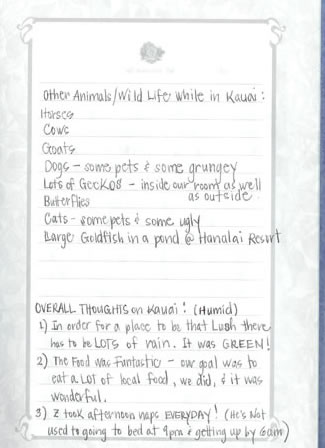 Other Animals/Wild Life While in Kauai:
Horses
Cows
Goats
Dogs - some pets & some grungey
Lots of Geckos - inside our room as well
as outside.
Butterflies
Cats - some pets & some ugly
Large Goldfish in a pond @ Hanalai Resort
OVERALL THOUGHTS on Kauai: (Humid)
1) In order for a place to be that Lush there
has to be LOTS of rain. It was GREEN!
2) The Food was Fantastic - our goal was to
eat a LOT of local food, we did, & it was
wonderful.
3) Z took afternoon naps EVERYDAY! (He's Not
used to going to bed at 9pm & getting up by 6am)